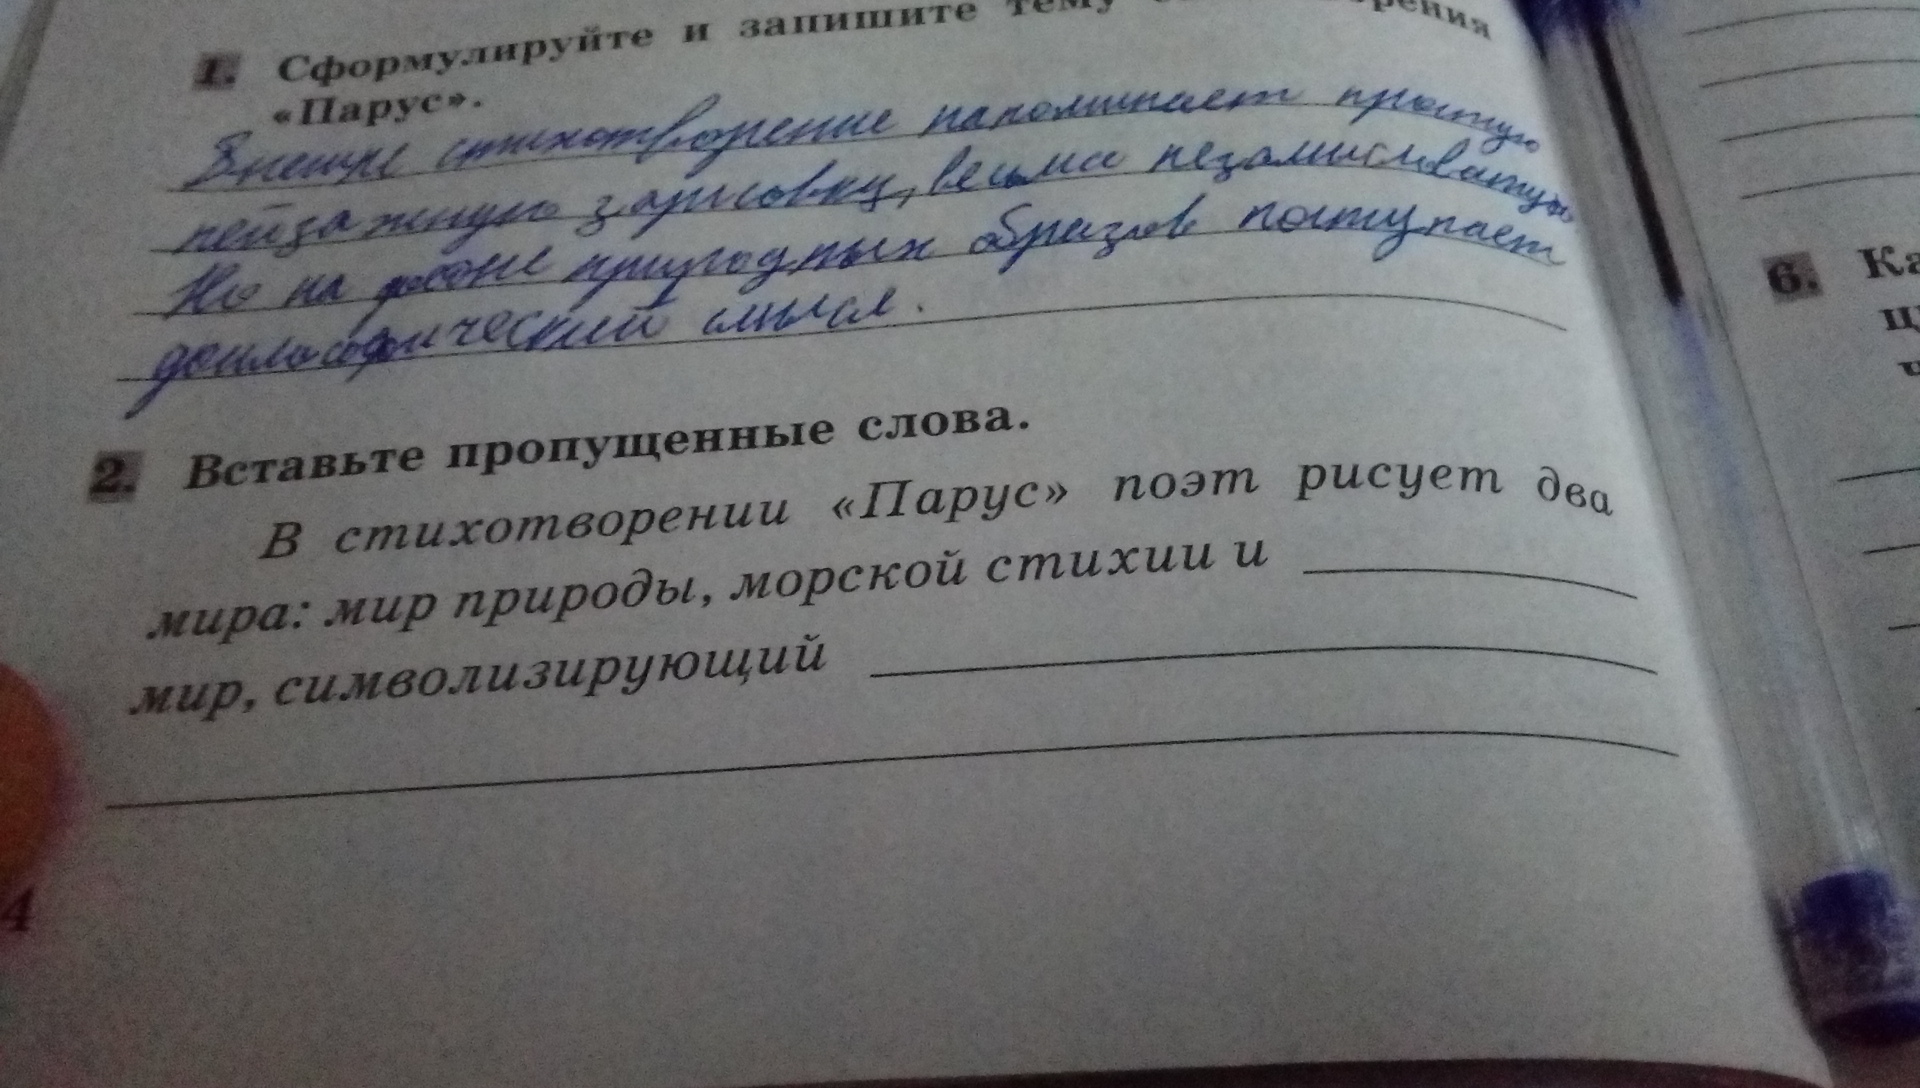 1. Сформулируйте и запишите тему
«Парус».
Внешне стихотворение напоминает простую
пейзажную зарисовку, весьма незамысловатую
Но на фоне природных образов поступает
философический смысл.
2. Вставьте пропущенные слова.
В стихотворении «Парус» поэт рисует два
мира: мир природы, морской стихии и
мир, символизирующий
4
6.